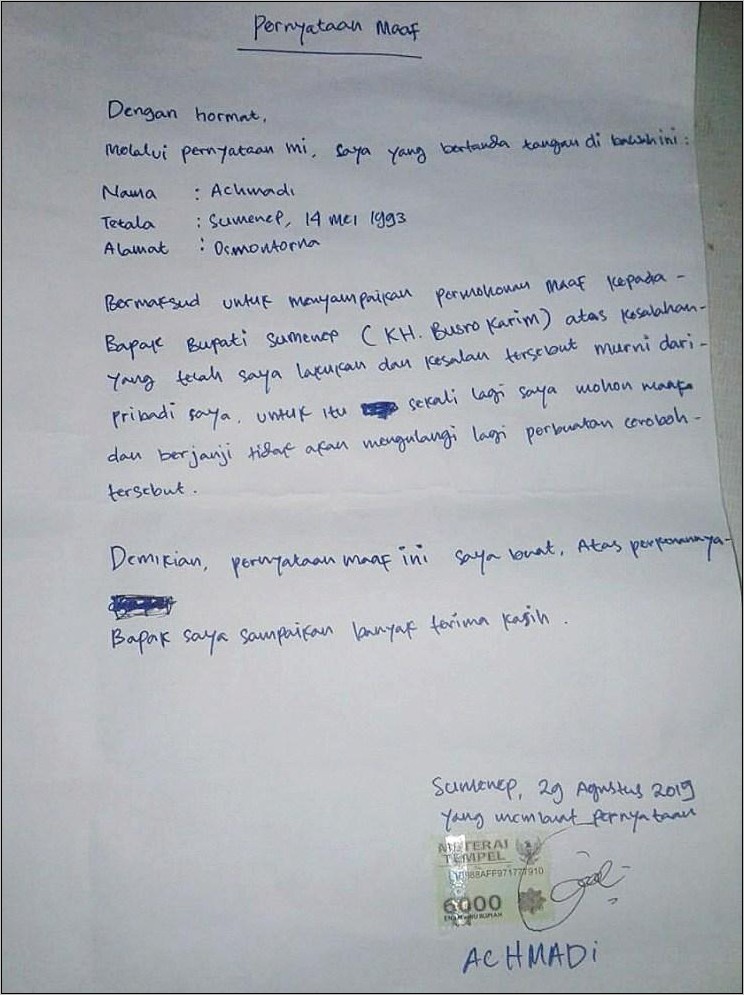 Pernyataan Maaf
Dengan hormat,
Melalui pernyataan ini, saya yang bertanda tangan di bawah ini :
Nama : Achmadi
Tetala : Sumenep, 14 Mei 1993
Alamat : Dsmontorna
Bermaksud untuk menyampaikan permohonan maaf kepada -
Bapak Bupati Sumenep (KH. Busro Karim) atas kesalahan -
yang telah saya lakukan dan kesalan tersebut murni dari -
pribadi saya. untuk itu sekali lagi saya mohon maaf
dan berjanji tidak akan mengulangi lagi perbuatan ceroboh -
tersebut.
Demikian, pernyataan maaf ini saya buat, Atas perkenannya -
Bapak saya sampaikan banyak terima kasih.
Sumenep, 29 Agustus 2019
Yang membuat pernyataan
METERAI
TEMPEL
6000
ENAM RIBU RUPIAH
ACHMADI